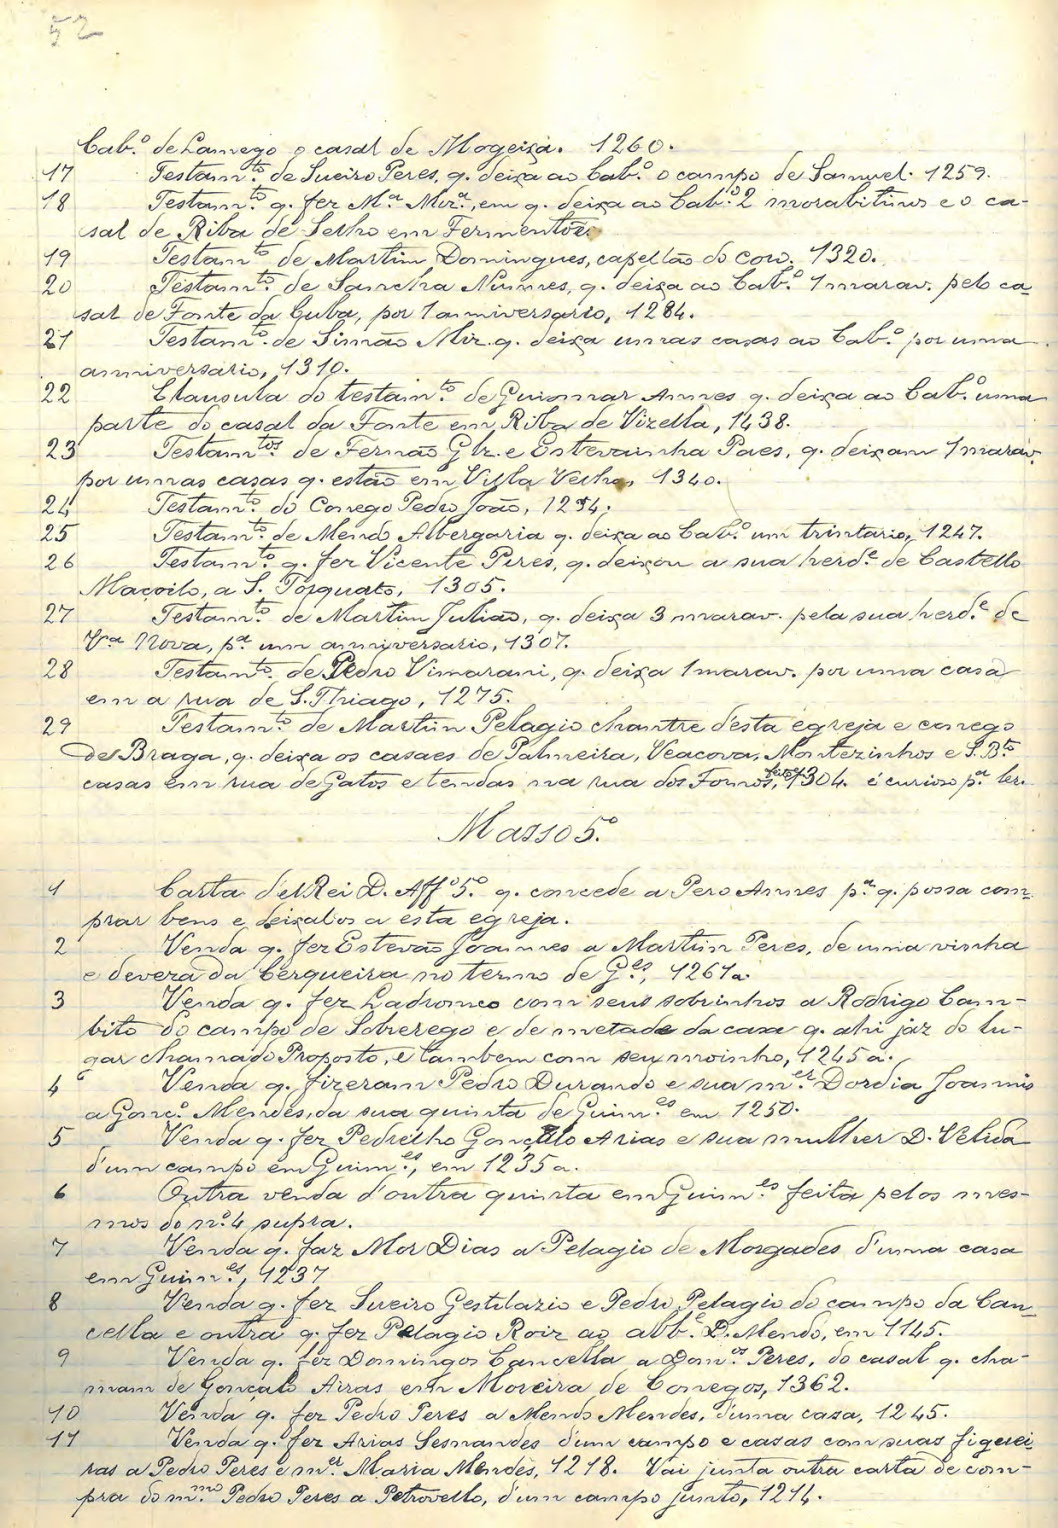 52
Cab.º de Lamego o casal de Mogeiça. 1260.
17 Testam.to de Sueiro Peres, q. deixa ao Cab.º o campo de Samuel. 1259.
18 Testam.to q. fez M.a Mir.a, em q. deixa ao Cab.º 2 morabitinos e o ca-
sal de Riba de Selho em Fermentões
19 Testam.to de Martim Domingues, capellão do coro. 1320.
20 Testam.to de Sancha Nunnes, q. deixa ao Cab.º 1 marav. pelo ca-
sal de Fonte da Cuba, por 1 anniversario, 1284.
21 Testam.to de Simão Mir. q. deixa umas casas ao Cab.º por uma
anniversario, 1310.
22 Clausula do testam.to de Guiomar Annes q. deixa ao Cab.º uma
parte do casal da Fonte em Riba de Vizella, 1438.
23 Testam.tos de Fernão Glz. e Estevainha Paes, q. deixam 1 marav.
por umas casas q. estão em Villa Velha, 1340.
24 Testam.to do Conego Pedro João, 1254.
25 Testam.to de Mendo Albergaria q. deixa ao Cab.º um trintario, 1247.
26 Testam.to q. fez Vicente Peres, q. deixou a sua herd.e de Castello
Maçoilo, a S. Torquato, 1305.
27 Testam.to de Martim Julião, q. deixa 3 marav. pela sua herd.e de
V.a Nova, p.a um anniversario, 1307.
28 Testam.to de Pedro Vimarani, q. deixa 1 marav. por uma casa
em a rua de S. Thiago, 1275.
29 Testam.to de Martim Pelagio chantre desta egreja e conego
de Braga, q. deixa os casaes de Palmeira, Veacova, Montezinhos e S. B.to
casas em rua de Gatos e tendas na rua dos Fornos, feito 1304. é curioso p.a ler.
Masso 5.º
1 Carta d'el Rei D. Aff.º 5.º q. concede a Pero Annes p.a q. possa com-
prar bens e deixalos a esta egreja.
2 Venda q. fez Estevão Joannes a Martim Peres, de uma vinha
e deveza da Cerqueira no termo de G.es, 1261 a.
3 Venda q. fez Ladronco com seus sobrinhos a Rodrigo Cam-
bito do campo de Sobrerego e de metade da casa q. ahi jaz do lu-
gar chamado Proposto, e tambem com seu moinho, 1245 a.
4 Venda q. fizeram Pedro Durando e sua m.er Dordia Joannis
a Gonç.º Mendes, da sua quinta de Guim.es em 1250.
5 Venda q. fez Pedrelho Gonçallo Arias e sua mulher D. Velida
d'um campo em Guim.es, em 1235 a.
6 Outra venda d'outra quinta em Guim.es feita pelos mes-
mos do nº 4 supra.
7 Venda q. faz Mor Dias a Pelagio de Morgades d'uma casa
em Guim.es, 1237
8 Venda q. fez Sueiro Gestilazio e Pedro Pelagio do campo da Can-
cella e outra q. fez Pelagio Roiz ao abb.e D. Mendo, em 1145.
9 Venda q. fez Domingos Cancella a Dom.os Peres, do casal q. cha-
mam de Gonçalo Airas em Moreira de Conegos, 1362.
10 Venda q. fez Pedro Peres a Mendo Mendes, d'uma caza, 1245.
11 Venda q. fez Arias Sesnandes d'um campo e casas com suas figuei-
ras a Pedro Peres e m.er Maria Mendes, 1218. Vai junta outra carta de com-
pra do m.mo Pedro Peres a Petrovello, d'um campo junto, 1214.